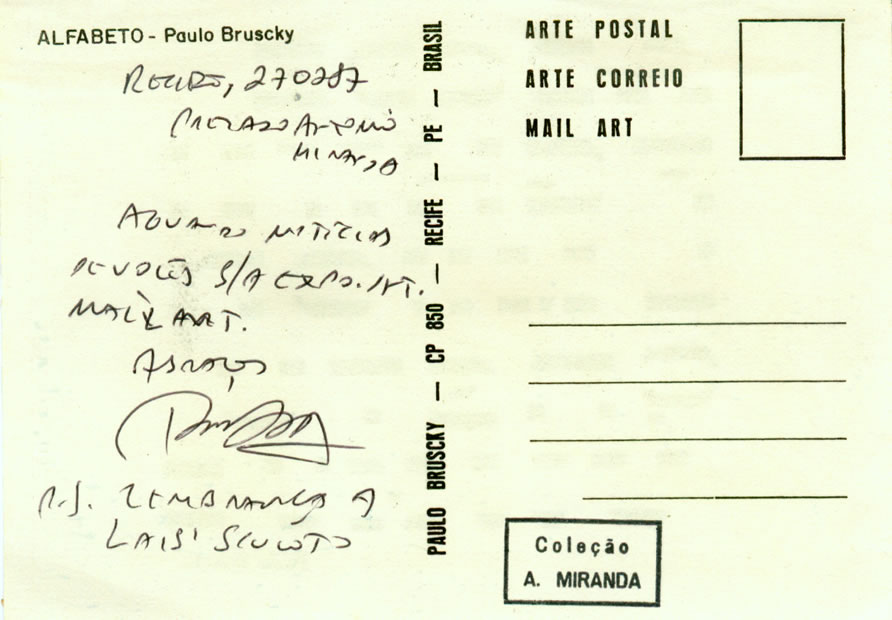 ALFABETO - Paulo Bruscky
RECIFE, 270287
PREZADO ANTONIO
MIRANDA
AGUARDO NOTÍCIAS
DE VOCÊS S/A EXPO. INT.
MAIL ART.
ABRAÇOS
P.S. LEMBRANÇA A
LAIS
PAULO BRUSCKY — CP 850 — RECIFE — PE — BRASIL
ARTE POSTAL
ARTE CORREIO
MAIL ART
Coleção
A. MIRANDA